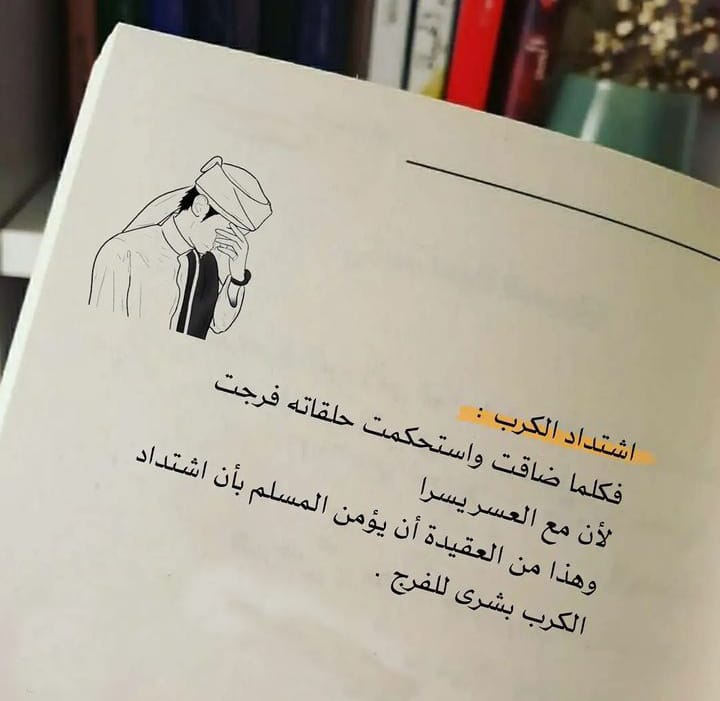 اشتداد الكرب :
فكلما ضاقت واستحكمت حلقاته فرجت
لأن مع العسر يسرا
وهذا من العقيدة أن يؤمن المسلم بأن اشتداد
الكرب بشرى للفرج .